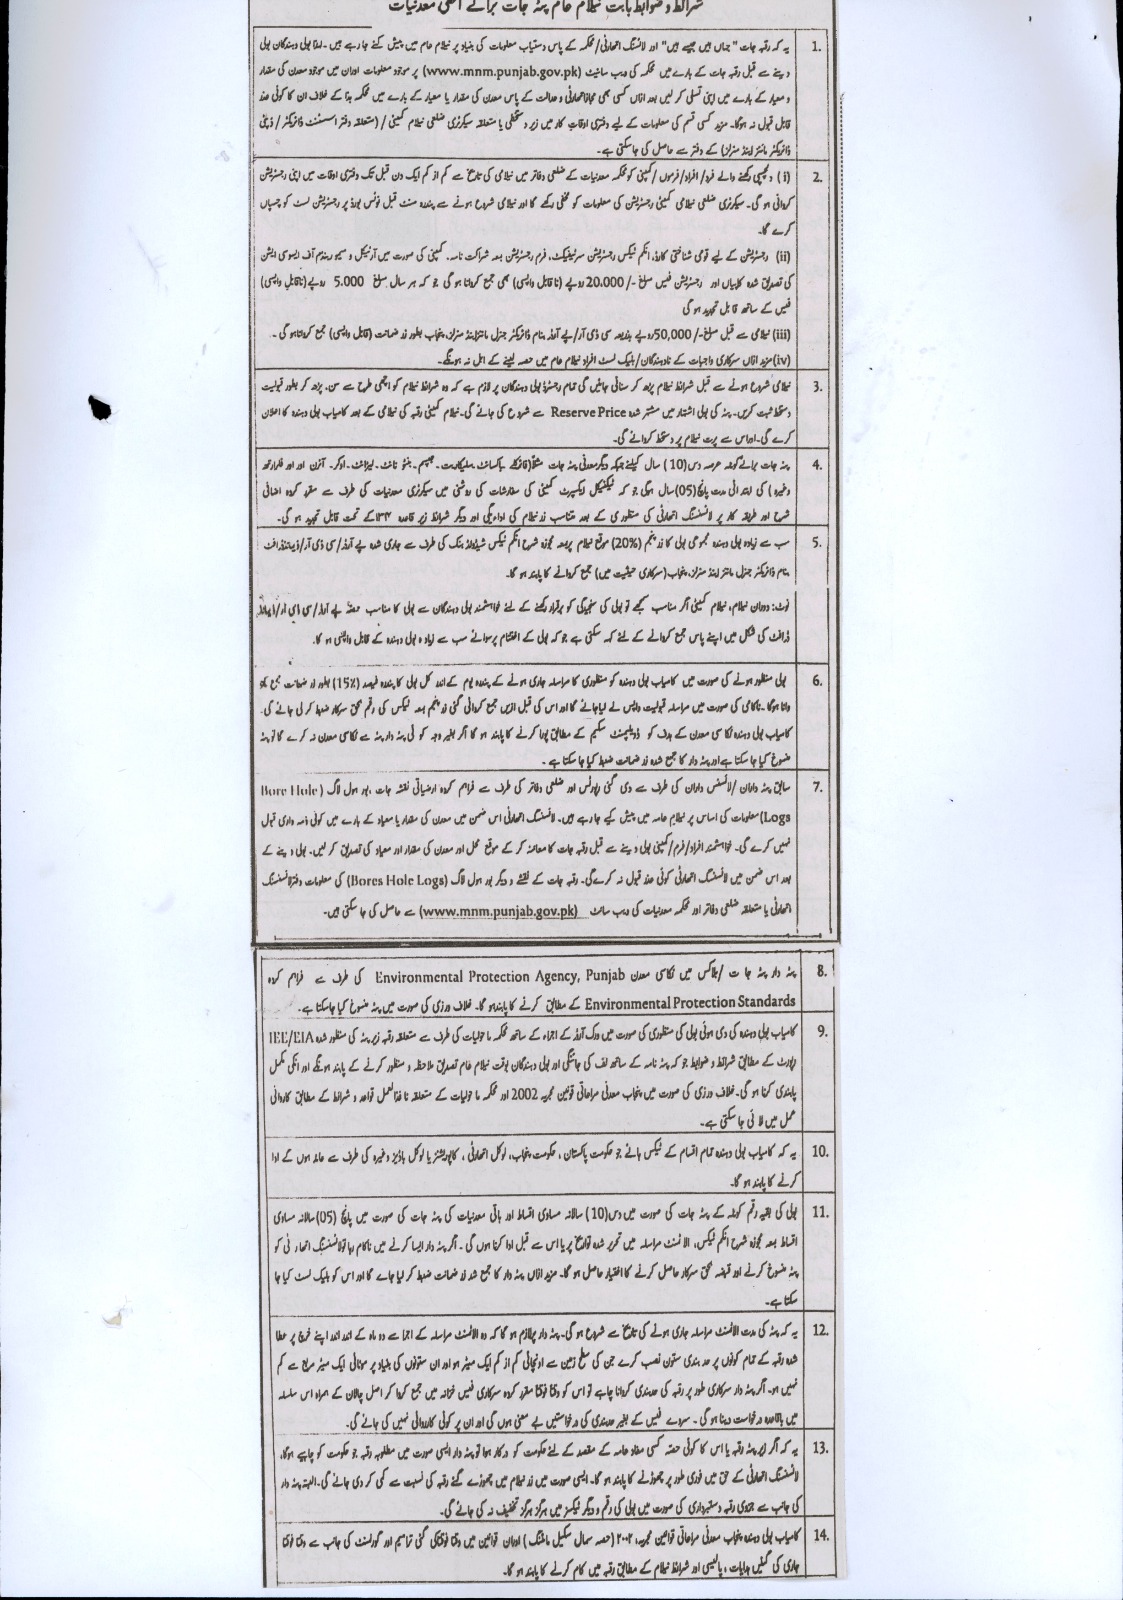 شرائط و ضوابط بابت نیلام عام پٹہ جات برائے معدنیات
1. یہ کہ رقبہ جات "جہاں ہیں جیسے ہیں" اور لائسنسنگ اتھارٹی/محکمہ کے پاس دستیاب معلومات کی بنیاد پر نیلام عام میں پیش کئے جا رہے ہیں۔ لہذا بولی دہندگان بولی
دینے سے قبل رقبہ جات کے بارے میں محکمہ کی ویب سائیٹ (www.mnm.punjab.gov.pk) پر موجود معلومات اور ان میں موجود معدن کی مقدار
و معیار کے بارے میں اپنی تسلی کر لیں بعد ازاں کسی بھی مجاز اتھارٹی و عدالت کے پاس معدن کی مقدار یا معیار کے بارے میں محکمہ ہذا کے خلاف ان کا کوئی عذر
قابل قبول نہ ہوگا۔ مزید کسی قسم کی معلومات کے لیے دفتری اوقات کار میں زیر دستخطی یا متعلقہ سیکرٹری ضلعی نیلام کمیٹی / (متعلقہ دفتر اسسٹنٹ ڈائریکٹر / ڈپٹی
ڈائریکٹر مائنز اینڈ منرلز) کے دفتر سے حاصل کی جا سکتی ہے۔
2. (i) دلچسپی رکھنے والے فرد/افراد/فرموں/کمپنی کو محکمہ معدنیات کے ضلعی دفاتر میں نیلامی کی تاریخ سے کم از کم ایک دن قبل تک دفتری اوقات میں اپنی رجسٹریشن
کروانی ہو گی۔ سیکرٹری ضلعی نیلامی کمیٹی رجسٹریشن کی معلومات کو مخفی رکھے گا اور نیلامی شروع ہونے سے پندرہ منٹ قبل نوٹس بورڈ پر رجسٹریشن لسٹ کو چسپاں
کرے گا۔
(ii) رجسٹریشن کے لیے قومی شناختی کارڈ، انکم ٹیکس رجسٹریشن سرٹیفیکیٹ، فرم رجسٹریشن بمعہ شراکت نامہ۔ کمپنی کی صورت میں آرٹیکل و میمورینڈم آف ایسوسی ایشن
کی تصدیق شدہ کاپیاں اور رجسٹریشن فیس مبلغ -/20,000 روپے (ناقابل واپسی) بھی جمع کروانا ہو گی جو کہ ہر سال مبلغ 5,000 روپے (ناقابل واپسی)
فیس کے ساتھ قابل تجدید ہو گی
(iii) نیلامی سے قبل مبلغ -/50,000 روپے بذریعہ سی ڈی آر/پے آرڈر بنام ڈائریکٹر جنرل مائنز اینڈ منرلز، پنجاب بطور زر ضمانت (قابل واپسی) جمع کروانا ہو گی ۔
(iv) مزید ازاں سرکاری واجبات کے نادہندگان/بلیک لسٹ افراد نیلام عام میں حصہ لینے کے اہل نہ ہونگے۔
3. نیلامی شروع ہونے سے قبل شرائط نیلام پڑھ کر سنائی جائیں گی تمام رجسٹرڈ بولی دہندگان پر لازم ہے کہ وہ شرائط نیلام کو اچھی طرح سے سن، پڑھ کر بطور قبولیت
دستخط ثبت کریں۔ پٹہ کی بولی اشتہار میں مشتہر شدہ Reserve Price سے شروع کی جائے گی۔ نیلام کمیٹی رقبہ کی نیلامی کے بعد کامیاب بولی دہندہ کا اعلان
کرے گی۔ اور اس سے پرت نیلام پر دستخط کروائے گی۔
4. پٹہ جات برائے کوئلہ عرصہ دس (10) سال کیلئے جبکہ دیگر معدنی پٹہ جات مثلاً (فائرکلے باکسائیٹ، سلیکا سینڈ۔ جپسم۔ بنٹو نائٹ۔ لیٹرائٹ۔ اوکر۔ آئرن اور اور فلرارتھ
وغیرہ) کی ابتدائی مدت پانچ (05) سال ہوگی جو کہ ٹیکنیکل ایکسپرٹ کمیٹی کی سفارشات کی روشنی میں سیکرٹری معدنیات کی طرف سے مقرر کردہ اضافی
شرح اور طریقہ کار پر لائسنسنگ اتھارٹی کی منظوری کے بعد متناسب زر نیلام کی ادائیگی اور دیگر شرائط زیر قاعدہ ۱۳۴ کے تحت قابل تجدید ہو گی۔
5. سب سے زیادہ بولی دہندہ مجموعی بولی کا زر پنجم (20%) موقع نیلام پر بمعہ مجوزہ شرح انکم ٹیکس شیڈولڈ بنک کی طرف سے جاری شدہ پے آرڈر/سی ڈی آر/ڈیمانڈ ڈرافٹ
بنام ڈائریکٹر جنرل مائنز اینڈ منرلز، پنجاب (سرکاری حیثیت میں) جمع کروانے کا پابند ہو گا۔
نوٹ: دوران نیلام، نیلام کمیٹی اگر مناسب سمجھے تو بولی کی سنجیدگی کو برقرار رکھنے کے لئے خواہشمند بولی دہندگان سے بولی کا مناسب حصہ پے آرڈر/سی ڈی آر/ڈیمانڈ
ڈرافٹ کی شکل میں اپنے پاس جمع کروانے کے لئے کہہ سکتی ہے جو کہ بولی کے اختتام پر سوائے سب سے زیادہ بولی دہندہ کے قابل واپسی ہو گا۔
6. بولی منظور ہونے کی صورت میں کامیاب بولی دہندہ کو منظوری کا مراسلہ جاری ہونے کے پندرہ یوم کے اندر کل بولی کا پندرہ فیصد (15%) بطور زر ضمانت جمع کرو
وانا ہوگا۔ ناکامی کی صورت میں مراسلہ قبولیت واپس لے لیا جائے گا اور اس کی قبل ازیں جمع کروائی گئی زر پنجم بمعہ ٹیکس کی رقم بحق سرکار ضبط کر لی جائے گی۔
کامیاب بولی دہندہ نکاسی معدن کے ہدف کو ڈویلپمنٹ سکیم کے مطابق پورا کرنے کا پابند ہو گا اگر بغیر وجہ کوئی پٹہ دار پٹہ سے نکاسی معدن نہ کرے گا تو پٹہ
منسوخ کیا جا سکتا ہے اور پٹہ دار کا جمع شدہ زر ضمانت ضبط کیا جا سکتا ہے۔
7. سابق پٹہ داران /لائسنس داران کی طرف سے دی گئی رپورٹس اور ضلعی دفاتر کی طرف سے فراہم کردہ ارضیاتی نقشہ جات، بور ہول لاگ (Bore Hole
Logs) معلومات کی اساس پر نیلام عامہ میں پیش کیے جا رہے ہیں۔ لائسنسنگ اتھارٹی اس ضمن میں معدن کی مقدار یا معیار کے بارے میں کوئی ذمہ داری قبول
نہیں کرے گی۔ خواہشمند افراد/فرم/کمپنی بولی دینے سے قبل رقبہ جات کا معائنہ کر کے موقع محل اور معدن کی مقدار اور معیار کی تصدیق کر لیں۔ بولی دینے کے
بعد اس ضمن میں لائسنسنگ اتھارٹی کوئی عذر قبول نہ کرے گی۔ رقبہ جات کے نقشے و دیگر بور ہول لاگ (Bores Hole Logs) کی معلومات دفتر لائسنسنگ
اتھارٹی یا متعلقہ ضلعی دفاتر اور محکمہ معدنیات کی ویب سائٹ (www.mnm.punjab.gov.pk) سے حاصل کی جا سکتی ہیں۔
8. پٹہ دار پٹہ جات /بلاکس میں نکاسی معدن Environmental Protection Agency, Punjab کی طرف سے فراہم کردہ
Environmental Protection Standards کے مطابق کرنے کا پابند ہو گا۔ خلاف ورزی کی صورت میں پٹہ منسوخ کیا جا سکتا ہے۔
9. کامیاب بولی دہندہ کی دی ہوئی بولی کی منظوری کی صورت میں ورک آرڈر کے اجراء کے ساتھ محکمہ ماحولیات کی طرف سے متعلقہ رقبہ زیر پٹہ کی منظور شدہ IEE/EIA
رپورٹ کے مطابق شرائط و ضوابط جو کہ پٹہ نامہ کے ساتھ لف کی جائیگی اور بولی دہندگان بوقت نیلام عام تصدیق ملاحظہ و منظور کرنے کے پابند ہونگے اور انکی مکمل
پابندی کرنا ہو گی۔ خلاف ورزی کی صورت میں پنجاب معدنی مراعاتی قوانین مجریہ 2002 اور محکمہ ماحولیات کے متعلقہ نافذ العمل قواعد و شرائط کے مطابق کاروائی
عمل میں لائی جا سکتی ہے۔
10. یہ کہ کامیاب بولی دہندہ تمام اقسام کے ٹیکس ہائے جو حکومت پاکستان، حکومت پنجاب، لوکل اتھارٹی، کارپوریشنز یا لوکل باڈیز وغیرہ کی طرف سے عائد ہوں گے ادا
کرنے کا پابند ہو گا۔
11. بولی کی بقیہ رقم کوئلہ کے پٹہ جات کی صورت میں دس (10) سالانہ مساوی اقساط اور باقی معدنیات کی پٹہ جات کی صورت میں پانچ (05) سالانہ مساوی
اقساط بمعہ مجوزہ شرح انکم ٹیکس، الاٹمنٹ مراسلہ میں تحریر شدہ تواریخ پر یا اس سے قبل ادا کرنا ہوں گی۔ اگر پٹہ دار ایسا کرنے میں ناکام رہا تو لائسنسنگ اتھارٹی کو
پٹہ منسوخ کرنے اور قبضہ بحق سرکار حاصل کرنے کا اختیار حاصل ہو گا۔ مزید ازاں پٹہ دار کا جمع شدہ زر ضمانت ضبط کر لیا جائے گا اور اس کو بلیک لسٹ کیا جا
سکتا ہے۔
12. یہ کہ پٹہ کی مدت الاٹمنٹ مراسلہ جاری ہونے کی تاریخ سے شروع ہو گی۔ پٹہ دار پر لازم ہو گا کہ وہ الاٹمنٹ مراسلہ کے اجرا سے دو ماہ کے اندر اندر اپنے خرچ پر عطا
شدہ رقبہ کے تمام کونوں پر حد بندی ستون نصب کرے جن کی سطح زمین سے اونچائی کم از کم ایک میٹر ہو اور ان ستونوں کی بنیاد پر موٹائی ایک میٹر مربع سے کم
نہیں ہو۔ اگر پٹہ دار سرکاری طور پر رقبہ کی حد بندی کروانا چاہے تو اس کو وقتاً فوقتاً مقرر کردہ سرکاری فیس خزانہ میں جمع کروا کر اصل چالان کے ہمراہ اس سلسلہ
میں باقاعدہ درخواست دینا ہو گی۔ سروے فیس کے بغیر حد بندی کی درخواستیں بے معنی ہوں گی اور ان پر کوئی کارروائی نہیں کی جائے گی۔
13. یہ کہ اگر زیر پٹہ رقبہ یا اس کا کوئی حصہ کسی مفاد عامہ کے مقصد کے لئے حکومت کو درکار ہوا تو پٹہ دار ایسی صورت میں مطلوبہ رقبہ جو حکومت کو چاہیے ہوگا،
لائسنسنگ اتھارٹی کے حق میں فوری طور پر چھوڑنے کا پابند ہو گا۔ ایسی صورت میں زر نیلام میں چھوڑے گئے رقبہ کی نسبت سے کمی کر دی جائے گی۔ البتہ پٹہ دار
کی جانب سے جزوی رقبہ دستبرداری کی صورت میں بولی کی رقم و دیگر ٹیکسز میں ہرگز ہرگز تخفیف نہ کی جائے گی۔
14. کامیاب بولی دہندہ پنجاب معدنی مراعاتی قوانین مجریہ، ۲۰۰۲ (حصہ سمال سکیل مائننگ) اور ان قوانین میں وقتاً فوقتاً کی گئی ترامیم اور گورنمنٹ کی جانب سے وقتاً فوقتاً
جاری کی گئیں ہدایات، پالیسی اور شرائط نیلام کے مطابق رقبہ میں کام کرنے کا پابند ہو گا۔